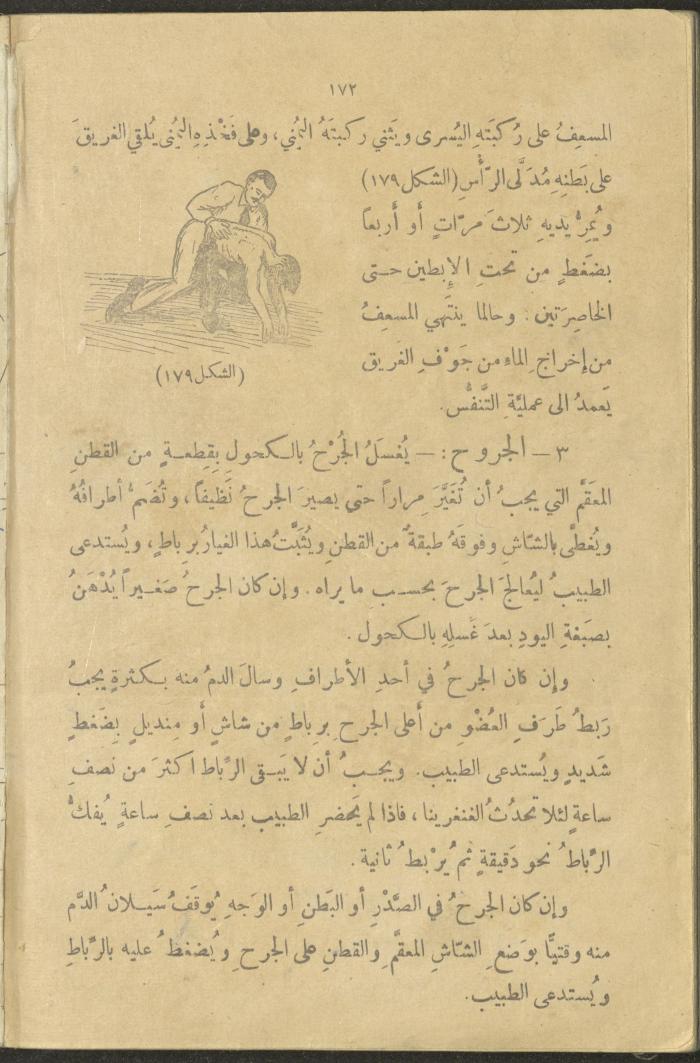 ١٧٢
المسعِفُ على رُكبَتَهِ اليُسرى ويَثني ركبتَهُ اليُمنى، وعلى فَخْذِهِ اليُمنى يُلقي الغريقَ
على بَطنِهِ مُدَلَّى الرَّأْسِ (الشكل ١٧٩)
ويُمِرُّ يديهِ ثلاثَ مرّاتٍ أو أَربعاً
بضَغطٍ من تحتِ الإِبطين حتى
الخاصِرَتين. وحالما ينتَهي المسعِفُ
من إخراجِ الماءِ من جَوْفِ الغريق
يَعمدُ الى عمليَّةِ التَّنفُّس.
(الشكل ١٧٩)
٣ – الجروح: – يُغسَلُ الجُرْحُ بالكحول بِقِطعةٍ من القطنِ
المعَقَّم التي يجبُ أن تُغَيَّرَ مِراراً حتى يصيرَ الجرحُ نَظيفاً، وتُضَمُّ أطرافُهُ
ويُغطَّى بالشّاشِ وفوقَهُ طبقةٌ من القطنِ ويُثَبَّتُ هذا الغيارُ برباطٍ، ويُستدعى
الطبيبُ ليُعالجَ الجرحَ بحسب ما يراه. وإن كان الجرحُ صَغيراً يُدْهَنُ
بصَبغةِ اليودِ بعدَ غَسلِهِ بالكحول.
وإن كان الجرحُ في أحدِ الأطرافِ وسالَ الدمُ منه بكثرةٍ يجبُ
رَبطُ طَرَفِ العُضْوِ من أَعلى الجرحِ بِرِباطٍ من شاشٍ أو مِنديلٍ بِضَغطٍ
شَديدٍ ويُستدعى الطبيب. ويجبُ أن لا يَبقى الرِّباط اكثرَ من نصفِ
ساعةٍ لئلا تحدُثَ الغنغرينا، فاذا لم يَحضرِ الطبيب بعد نصفِ ساعةٍ يُفَكُّ
الرِّباطُ نحوَ دَقيقةٍ ثمَّ يُرْبطُ ثانية.
وإن كان الجرحُ في الصَّدْرِ أو البَطنِ أو الوَجهِ يُوقَفُ سَيَلانُ الدَّم
منه وقتيًّا بوَضعِ الشّاشِ المعقَّمِ والقطنِ على الجرحِ ويُضغطُ عليه بالرِّباطِ
ويُستدعى الطبيب.